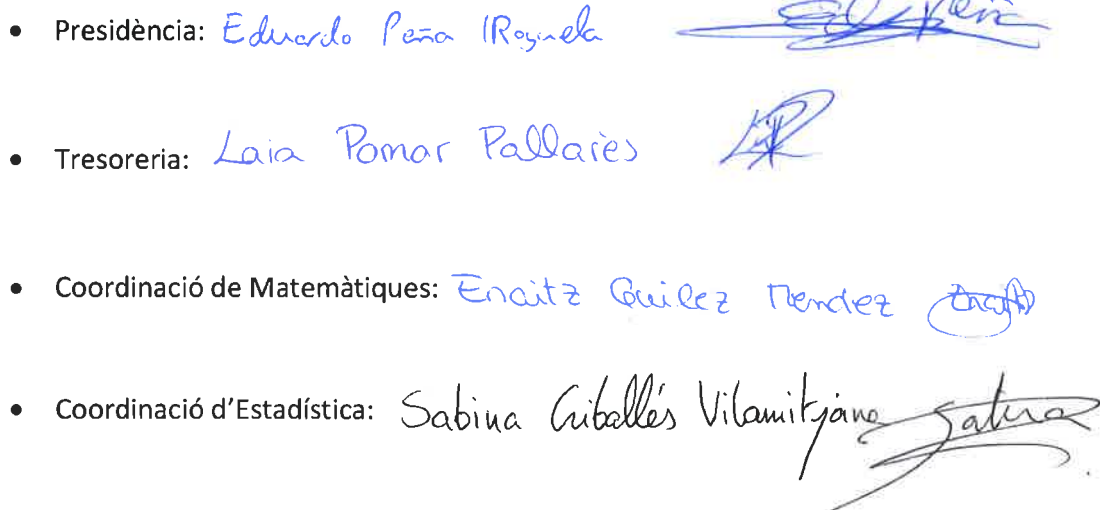 • Presidència: Eduardo Peña
• Tresoreria: Laia Pomar Pallarès
• Coordinació de Matemàtiques: Enaitz Quilez Mendez
• Coordinació d'Estadística: Sabina Gibellés Vilamitjana